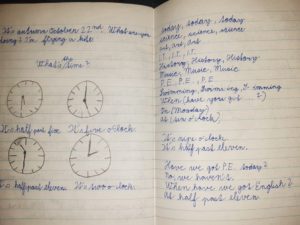 It's autumn October 22nd. What are you
doing? I'm flying a kite.
What's the time?
It's half past five. It's five o'clock.
It's half past eleven. It's two o'clock.
today, today, today
science, science, science
art, art, art
I.T. I.T. I.T.
History, History, History
Music, Music, Music
P.E., P.E., P.E
Swimming, Swimming, Swimming
When (have you got ...?)
On (Monday)
At (six o'clock)
It's nine o'clock
It's half past eleven.
Have we got P.E. today?
No, we haven't.
When have we got English?
At half past eleven